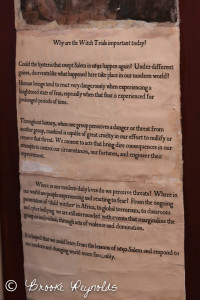 Why are the Witch Trials important today?
Could the hysteria that swept Salem in 1692 happen again? Under different
guises, do events like what happened here take place in our modern world?
Human beings tend to react very dangerously when experiencing a
heightened state of fear, especially when that fear is experienced for
prolonged periods of time.
Throughout history, when one group perceives a danger or threat from
another group, mankind is capable of great cruelty in our effort to nullify or
remove that threat. We commit to acts that bring dire consequences in our
attempts to control our circumstances, our fortunes, and engineer their
Where in our modern daily lives do we perceive threats? Where in
our world are people experiencing and reacting to fear? From the ongoing
persecution of "child witches" in Africa, to global terrorism, to classroom
and cyber bullying, we are still surrounded with events that marginalize the
group or individual, through acts of violence and domination.
It is hoped that we could learn from the lessons of 1692 Salem and respond to
our modern and changing world more
© Brooke Reynolds